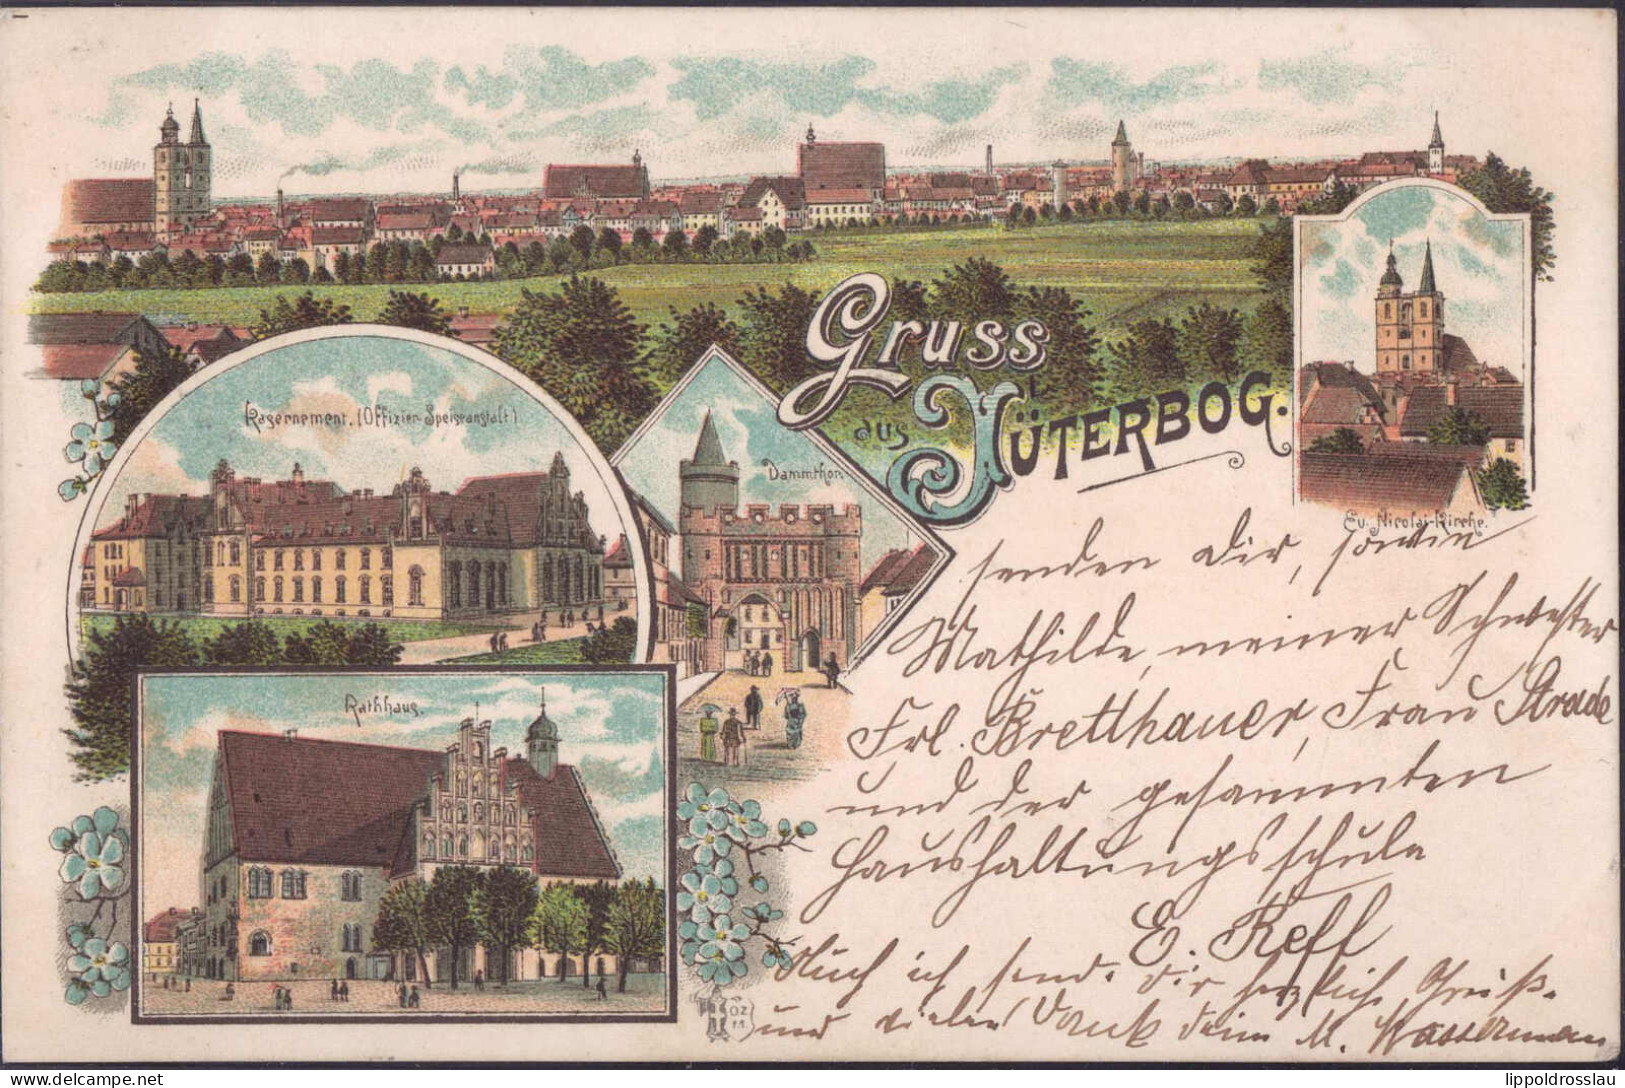 Gruss
aus JÜTERBOG.
Kasernement. (Offizier-Speiseanstalt)
Dammthor.
Ev. Nicolai-Kirche.
Rathhaus.
senden Dir, sowie
Mathilde, meiner Schwester
Frl. Bretthauer, Frau Strade
und der gesammten
Haushaltungsschule
E. Reff
Auch ich send. Dir herzliche Grüß.
und vielen Dank Deine M. Wassermann
lippoldrosslau